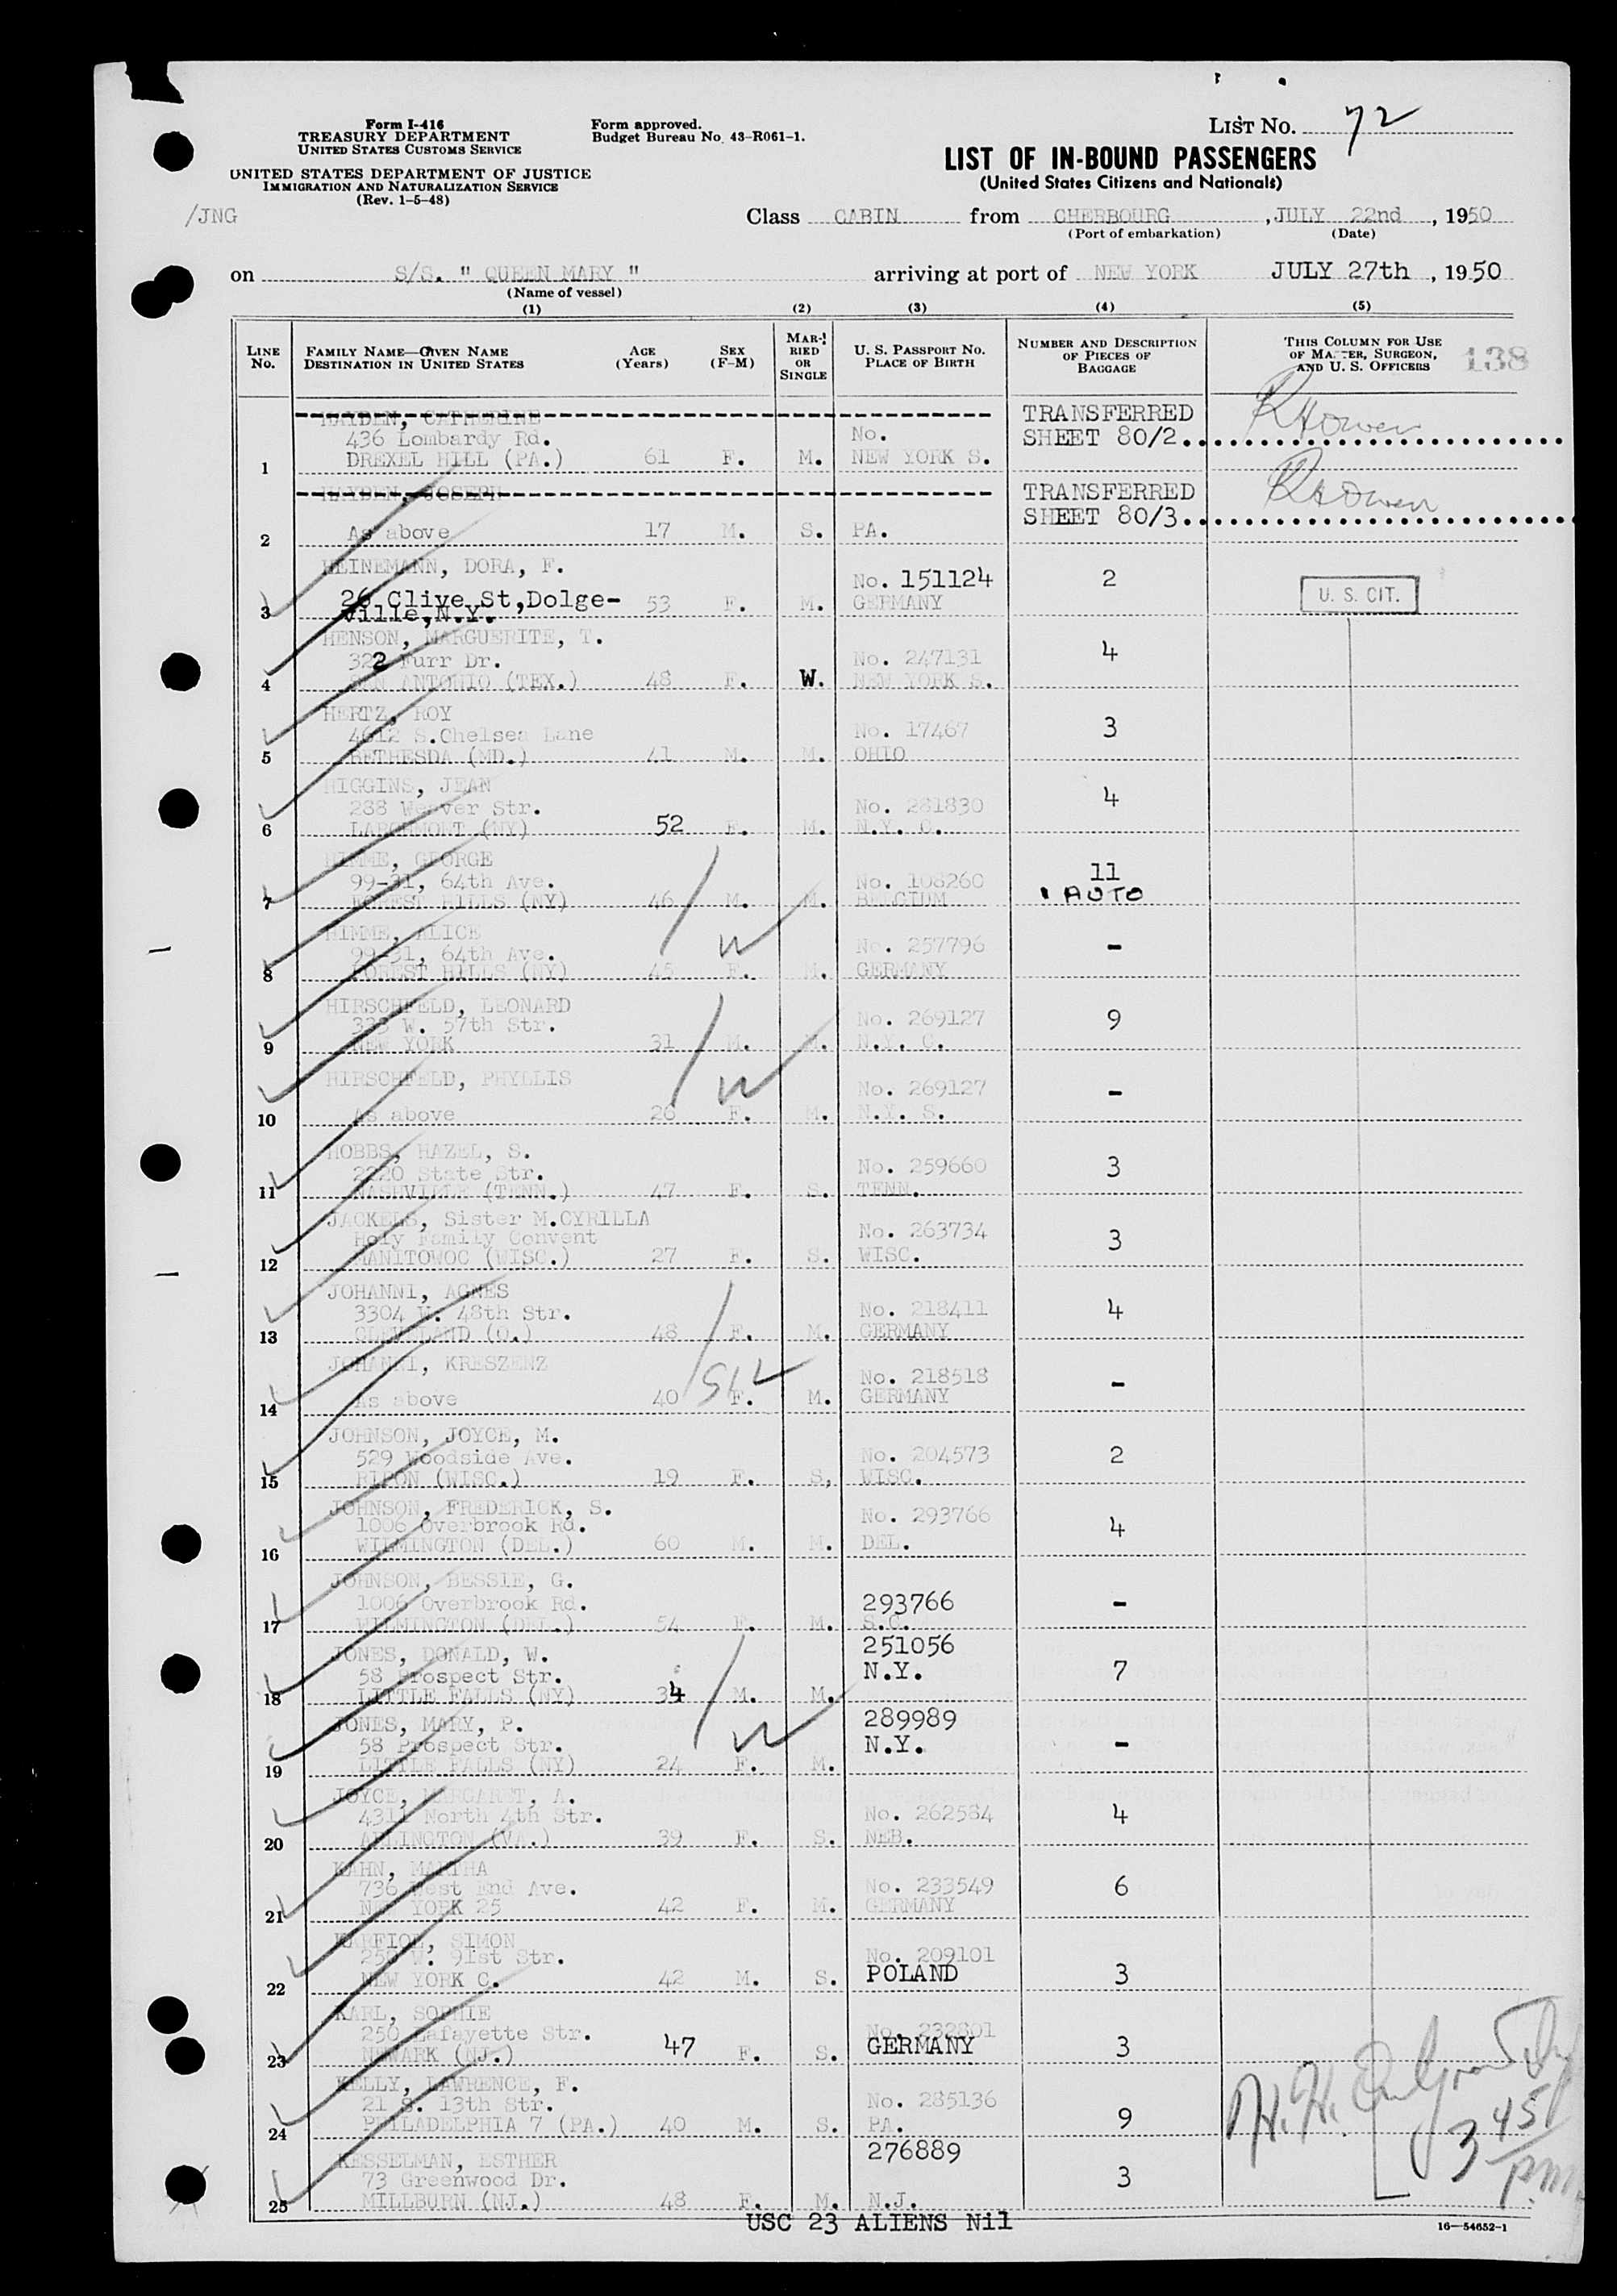 Form I-416
TREASURY DEPARTMENT
UNITED STATES CUSTOMS SERVICE
UNITED STATES DEPARTMENT OF JUSTICE
IMMIGRATION AND NATURALIZATION SERVICE
(Rev. 1-5-48)
Form approved.
Budget Bureau No. 43-R061-1.
LIST No. 72
LIST OF IN-BOUND PASSENGERS
(United States Citizens and Nationals)
/JNG
Class CABIN from CHERBOURG, JULY 22nd, 1950
(Port of embarkation) (Date)
on S/S. " QUEEN MARY " arriving at port of NEW YORK JULY 27th, 1950
(Name of vessel)
(1) (2) (3) (4) (5)
LINE No.
FAMILY NAME—GIVEN NAME
DESTINATION IN UNITED STATES
AGE (Years)
SEX (F-M)
MARRIED OR SINGLE
U. S. PASSPORT NO.
PLACE OF BIRTH
NUMBER AND DESCRIPTION OF PIECES OF BAGGAGE
THIS COLUMN FOR USE OF MASTER, SURGEON, AND U. S. OFFICERS
138
HAYDEN, CATHERINE TRANSFERRED
436 Lombardy Rd. No. SHEET 80/2. RHOwen
1 DREXEL HILL (PA.) 61 F. M. NEW YORK S.
HAYDEN, JOSEPH TRANSFERRED
SHEET 80/3. RHOwen
2 As above 17 M. S. PA.
HEINEMANN, DORA, F. No. 151124 2 U. S. CIT.
26 Clive St,Dolge-
3 ville,N.Y. 53 F. M. GERMANY
HENSON, MARGUERITE, T.
322 Furr Dr. No. 247131 4
4 SAN ANTONIO (TEX.) 48 F. W. NEW YORK S.
HERTZ, ROY
4612 S.Chelsea Lane No. 17467 3
5 BETHESDA (MD.) 41 M. M. OHIO
HIGGINS, JEAN
288 Weaver Str. No. 281830 4
6 LARCHMONT (NY) 52 F. M. N.Y. C.
HIMME, GEORGE 11
99-31, 64th Ave. No. 108260 1 AUTO
7 FOREST HILLS (NY) 46 M. M. BELGIUM
HIMME, ALICE
99-31, 64th Ave. No. 257796 -
8 FOREST HILLS (NY) 45 F. M. GERMANY
HIRSCHFELD, LEONARD
333 W. 57th Str. No. 269127 9
9 NEW YORK 31 M. M. N.Y. C.
HIRSCHFELD, PHYLLIS No. 269127 -
10 As above 26 F. M. N.Y. S.
HOBBS, HAZEL, S.
2220 State Str. No. 259660 3
11 NASHVILLE (TENN.) 47 F. S. TENN.
JACKELS, Sister M.CYRILLA
Holy Family Convent No. 263734 3
12 MANITOWOC (WISC.) 27 F. S. WISC.
JOHANNI, AGNES
3304 W. 48th Str. No. 218411 4
13 CLEVELAND (O.) 48 F. M. GERMANY
JOHANNI, KRESZENZ No. 218518 -
14 As above 40 F. M. GERMANY
JOHNSON, JOYCE, M.
529 Woodside Ave. No. 204573 2
15 RIPON (WISC.) 19 F. S, WISC.
JOHNSON, FREDERICK, S.
1006 Overbrook Rd. No. 293766 4
16 WILMINGTON (DEL.) 60 M. M. DEL.
JOHNSON, BESSIE, G.
1006 Overbrook Rd. 293766 -
17 WILMINGTON (DEL.) 54 F. M. S.C.
JONES, DONALD, W. 251056
58 Prospect Str. N.Y. 7
18 LITTLE FALLS (NY) 34 M. M.
JONES, MARY, P. 289989
58 Prospect Str. N.Y. -
19 LITTLE FALLS (NY) 24 F. M.
JOYCE, MARGARET, A.
4311 North 4th Str. No. 262584 4
20 ARLINGTON (VA.) 39 F. S. NEB.
KAHN, MARTHA
736 West End Ave. No. 233549 6
21 NEW YORK 25 42 F. M. GERMANY
KARFIOL, SIMON
250 W. 91st Str. No. 209101
22 NEW YORK C. 42 M. S. POLAND 3
KARL, SOPHIE
250 Lafayette Str. No. 232801
23 NEWARK (NJ.) 47 F. S. GERMANY 3
KELLY, LAWRENCE, F.
21 S. 13th Str. No. 285136 9
24 PHILADELPHIA 7 (PA.) 40 M. S. PA.
KESSELMAN, ESTHER 276889
73 Greenwood Dr. 3
25 MILLBURN (NJ.) 48 F. M. N.J.
H.H.
3 45
pm
USC 23 ALIENS Nil
16—54652-1